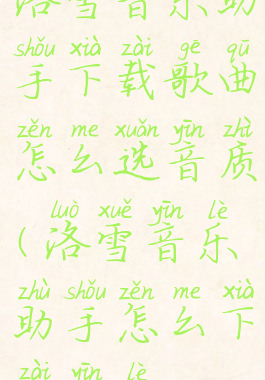 洛雪音乐助
shǒu xià zài gē qū
手下载歌曲
zěn me xuǎn yīn zhì
怎么选音质
luò xuě yīn lè
(洛雪音乐
zhù shǒu zěn me xià
助手怎么下
zài yīn lè